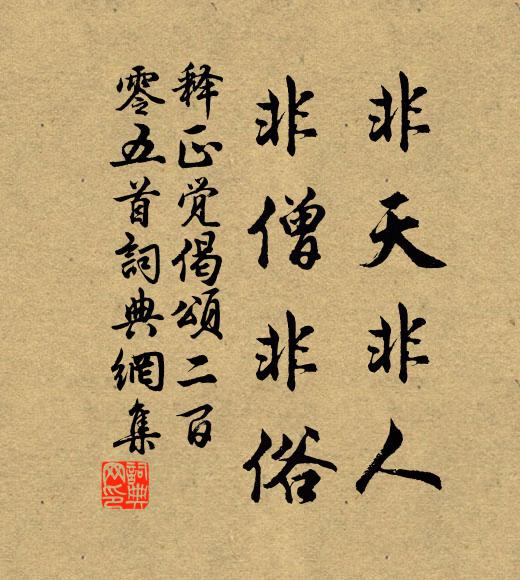 非天非人
非僧非俗
释正觉偈頌二百
零五首詞典網集
詞典网印